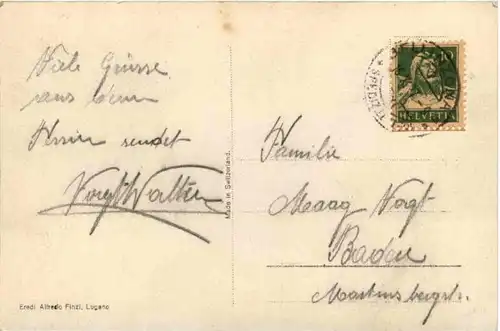 Viele Grüsse
aus dem
Tessin sendet
Vogt Walter
Made in Switzerland.
Eredi Alfredo Finzi, Lugano
10
HELVETIA
Familie
Maag Vogt
Baden
Martinsbergstr.